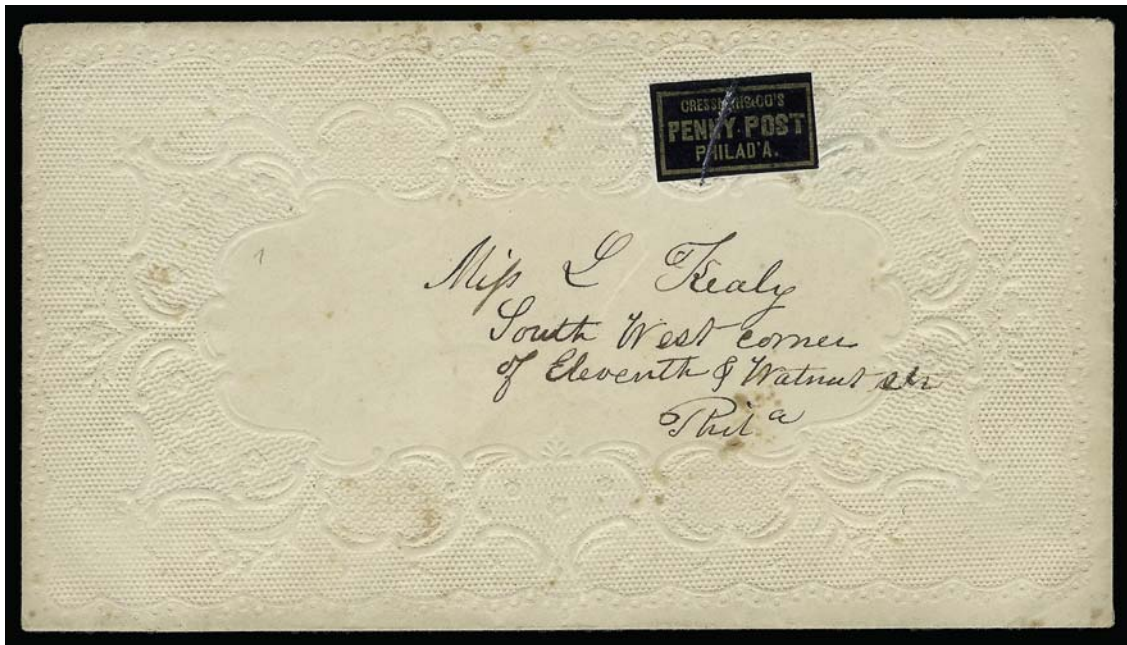 CRESSMAN&CO'S
PENNY POST
PHILAD'A.
Miss L Kealy
South West corner
of Eleventh & Walnut sts
Phila